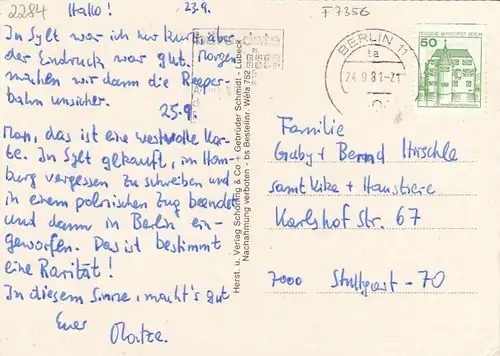 2284
Hallo! 23.9.
In Sylt war ich nur kurz, aber
der Eindruck war gut. Morgen
machen wir dann die Reeper-
bahn unsicher.
25.9.
Man, das ist eine wertvolle Kar-
te. In Sylt gekauft, im Ham
burg vergessen zu schreiben und
in einem polnischen Zug beendet
und dann in Berlin ein-
geworfen. Das ist bestimmt
eine Rarität!
In diesem Sinne, macht's gut
Euer
Matze.
Herst. u. Verlag Schöning & Co + Gebrüder Schmidt - Lübeck
Nachahmung verboten - bs Bestellnr. Weta 752
F 7356
BERLIN 11
24.9.81-21
50
DEUTSCHE BUNDESPOST BERLIN
Familie
Gaby + Bernd Hirschle
samt Kike + Haustiere
Karlshof Str. 67
7000 Stuttgart - 70